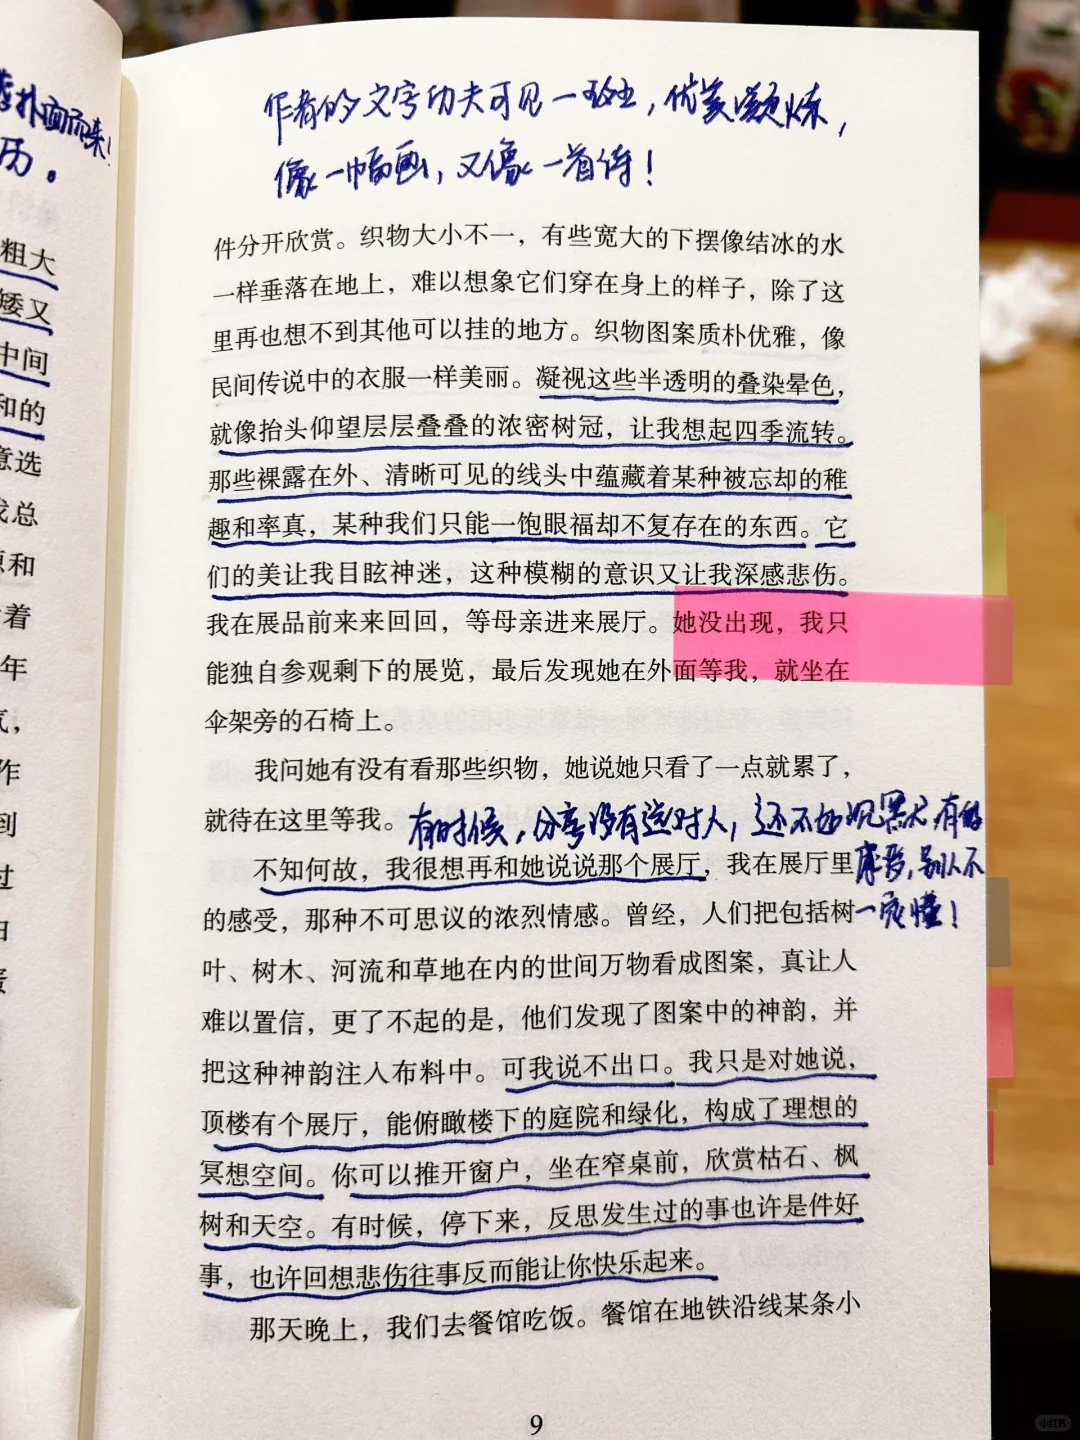 扑面而来！
历。
粗大
矮又
中间
和的
意选
我总
原和
着
年
气，
作
到
过
由
作者的文字功夫可见一斑，优美凝炼，
像一幅画，又像一首诗！
件分开欣赏。织物大小不一，有些宽大的下摆像结冰的水
一样垂落在地上，难以想象它们穿在身上的样子，除了这
里再也想不到其他可以挂的地方。织物图案质朴优雅，像
民间传说中的衣服一样美丽。凝视这些半透明的叠染晕色，
就像抬头仰望层层叠叠的浓密树冠，让我想起四季流转。
那些裸露在外、清晰可见的线头中蕴藏着某种被忘却的稚
趣和率真，某种我们只能一饱眼福却不复存在的东西。它
们的美让我目眩神迷，这种模糊的意识又让我深感悲伤。
我在展品前来来回回，等母亲进来展厅。她没出现，我只
能独自参观剩下的展览，最后发现她在外面等我，就坐在
伞架旁的石椅上。
我问她有没有看那些织物，她说她只看了一点就累了，
就待在这里等我。
有时候，分享没有选对人，还不如沉默大有的
感受，别人不
一定懂！
不知何故，我很想再和她说说那个展厅，我在展厅里
的感受，那种不可思议的浓烈情感。曾经，人们把包括树
叶、树木、河流和草地在内的世间万物看成图案，真让人
难以置信，更了不起的是，他们发现了图案中的神韵，并
把这种神韵注入布料中。可我说不出口。我只是对她说，
顶楼有个展厅，能俯瞰楼下的庭院和绿化，构成了理想的
冥想空间。你可以推开窗户，坐在窄桌前，欣赏枯石、枫
树和天空。有时候，停下来，反思发生过的事也许是件好
事，也许回想悲伤往事反而能让你快乐起来。
那天晚上，我们去餐馆吃饭。餐馆在地铁沿线某条小
9
小红书